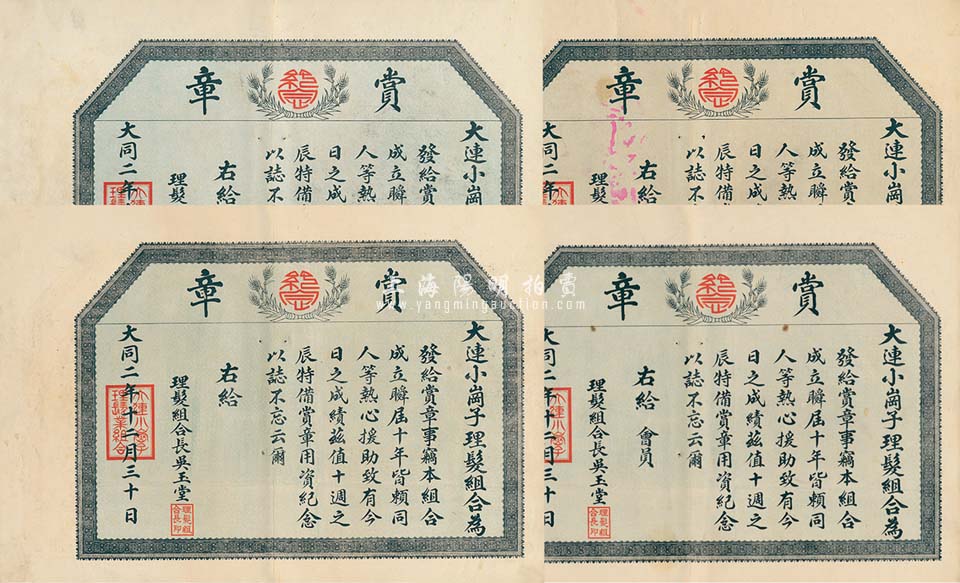 賞章
大連小崗
發給賞
成立瞬
人等熱
日之成
辰特借
以誌不
右給
理髮
大同二年
賞章
大連小崗
發給賞
成立瞬
人等熱
日之成
辰特借
以誌不
右給
理髮
大同二年
賞章
大連小崗子理髮組合為
發給賞章事竊本組合
成立瞬屆十年皆賴同
人等熱心援助致有今
日之成績茲值十週之
辰特借賞章用資紀念
以誌不忘云爾
右給
理髮組合長吳玉堂
理髮組合長印
大同二年十二月三十日
大連小崗子理髮業組合
賞章
大連小崗子理髮組合為
發給賞章事竊本組合
成立瞬屆十年皆賴同
人等熱心援助致有今
日之成績茲值十週之
辰特借賞章用資紀念
以誌不忘云爾
右給 會員
理髮組合長吳玉堂
理髮組合長印
大同二年十二月三十日
海陽明拍賣
www.yangmingauction.com